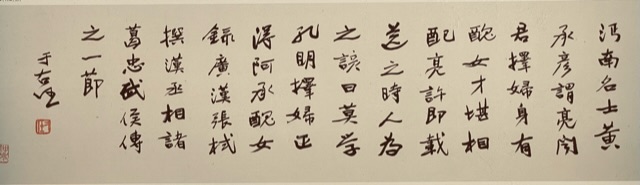 沔南名士黃
承彥謂亮聞
君擇婦身有
醜女才堪相
配亮許即載
送之時人為
之諺曰莫学
孔明擇婦正
得阿承醜女
錄廣漢張栻
撰漢丞相諸
葛忠武侯傳
之一節
于右任